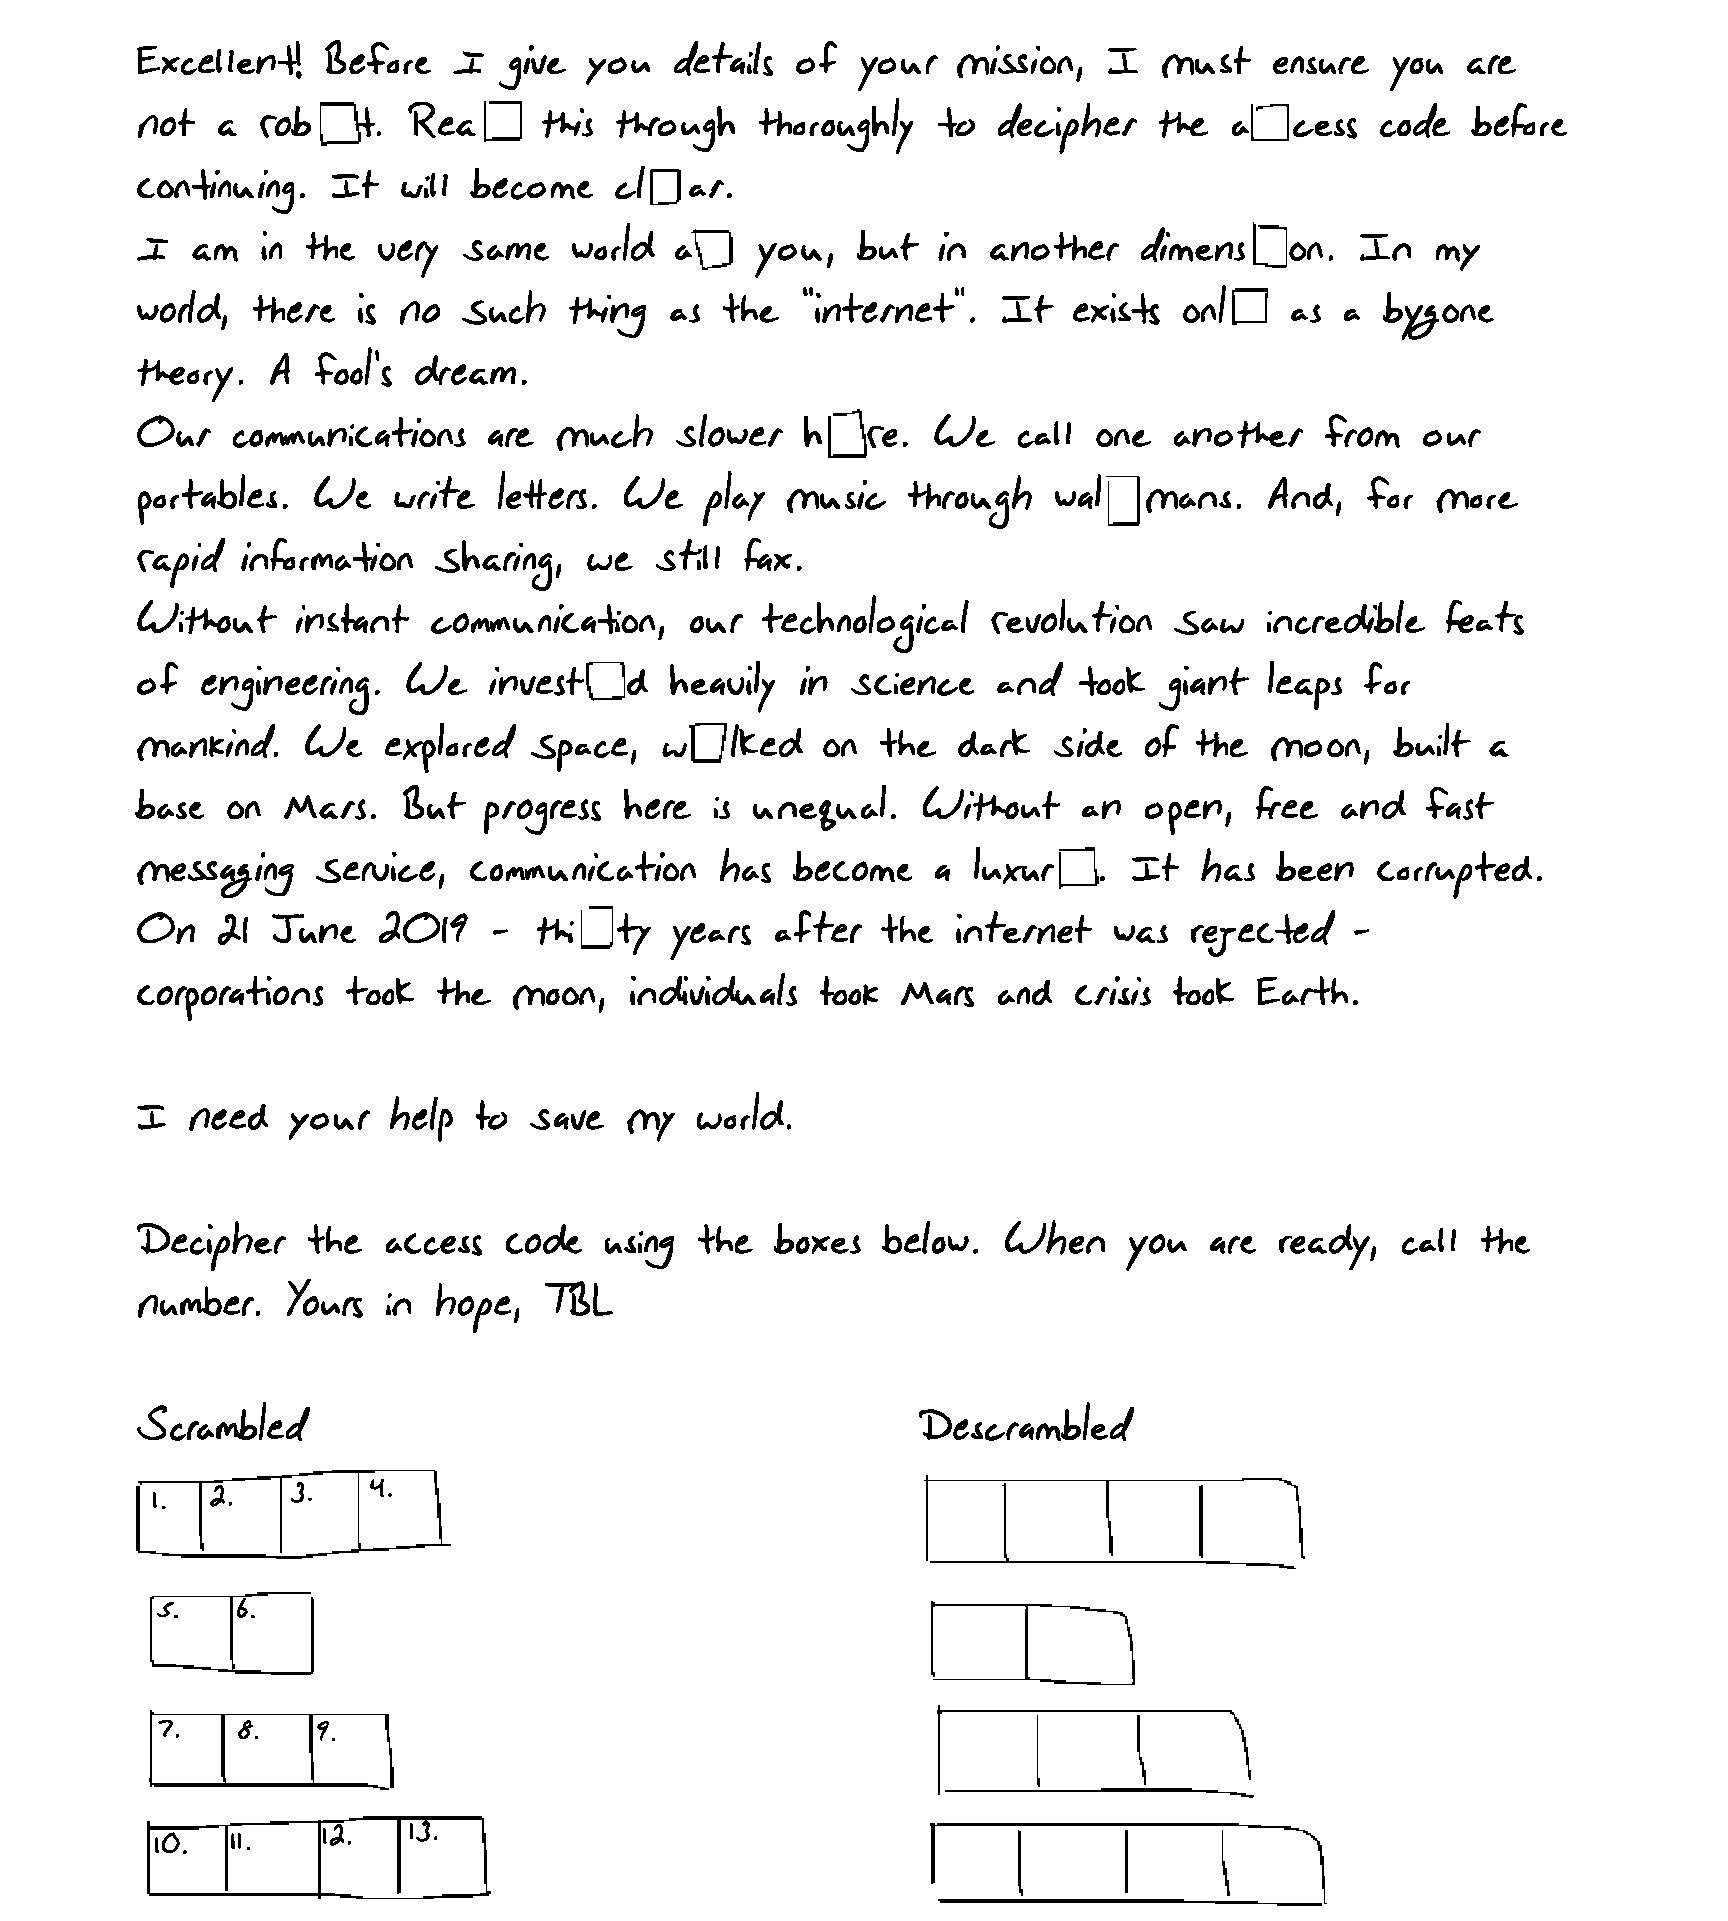 Excellent! Before I give you details of your mission, I must ensure you are
not a rob□t. Rea□ this through thoroughly to decipher the a□cess code before
continuing. It will become cl□ar.
I am in the very same world a□ you, but in another dimens□on. In my
world, there is no such thing as the "internet". It exists onl□ as a bygone
theory. A fool's dream.
Our communications are much slower h□re. We call one another from our
portables. We write letters. We play music through wal□mans. And, for more
rapid information sharing, we still fax.
Without instant communication, our technological revolution saw incredible feats
of engineering. We invest□d heavily in science and took giant leaps for
mankind. We explored space, w□lked on the dark side of the moon, built a
base on Mars. But progress here is unequal. Without an open, free and fast
messaging service, communication has become a luxur□. It has been corrupted.
On 21 June 2019 - thi□ty years after the internet was rejected -
corporations took the moon, individuals took Mars and crisis took Earth.
I need your help to save my world.
Decipher the access code using the boxes below. When you are ready, call the
number. Yours in hope, TBL
Scrambled Descrambled
1. 2. 3. 4.
5. 6.
7. 8. 9.
10. 11. 12. 13.